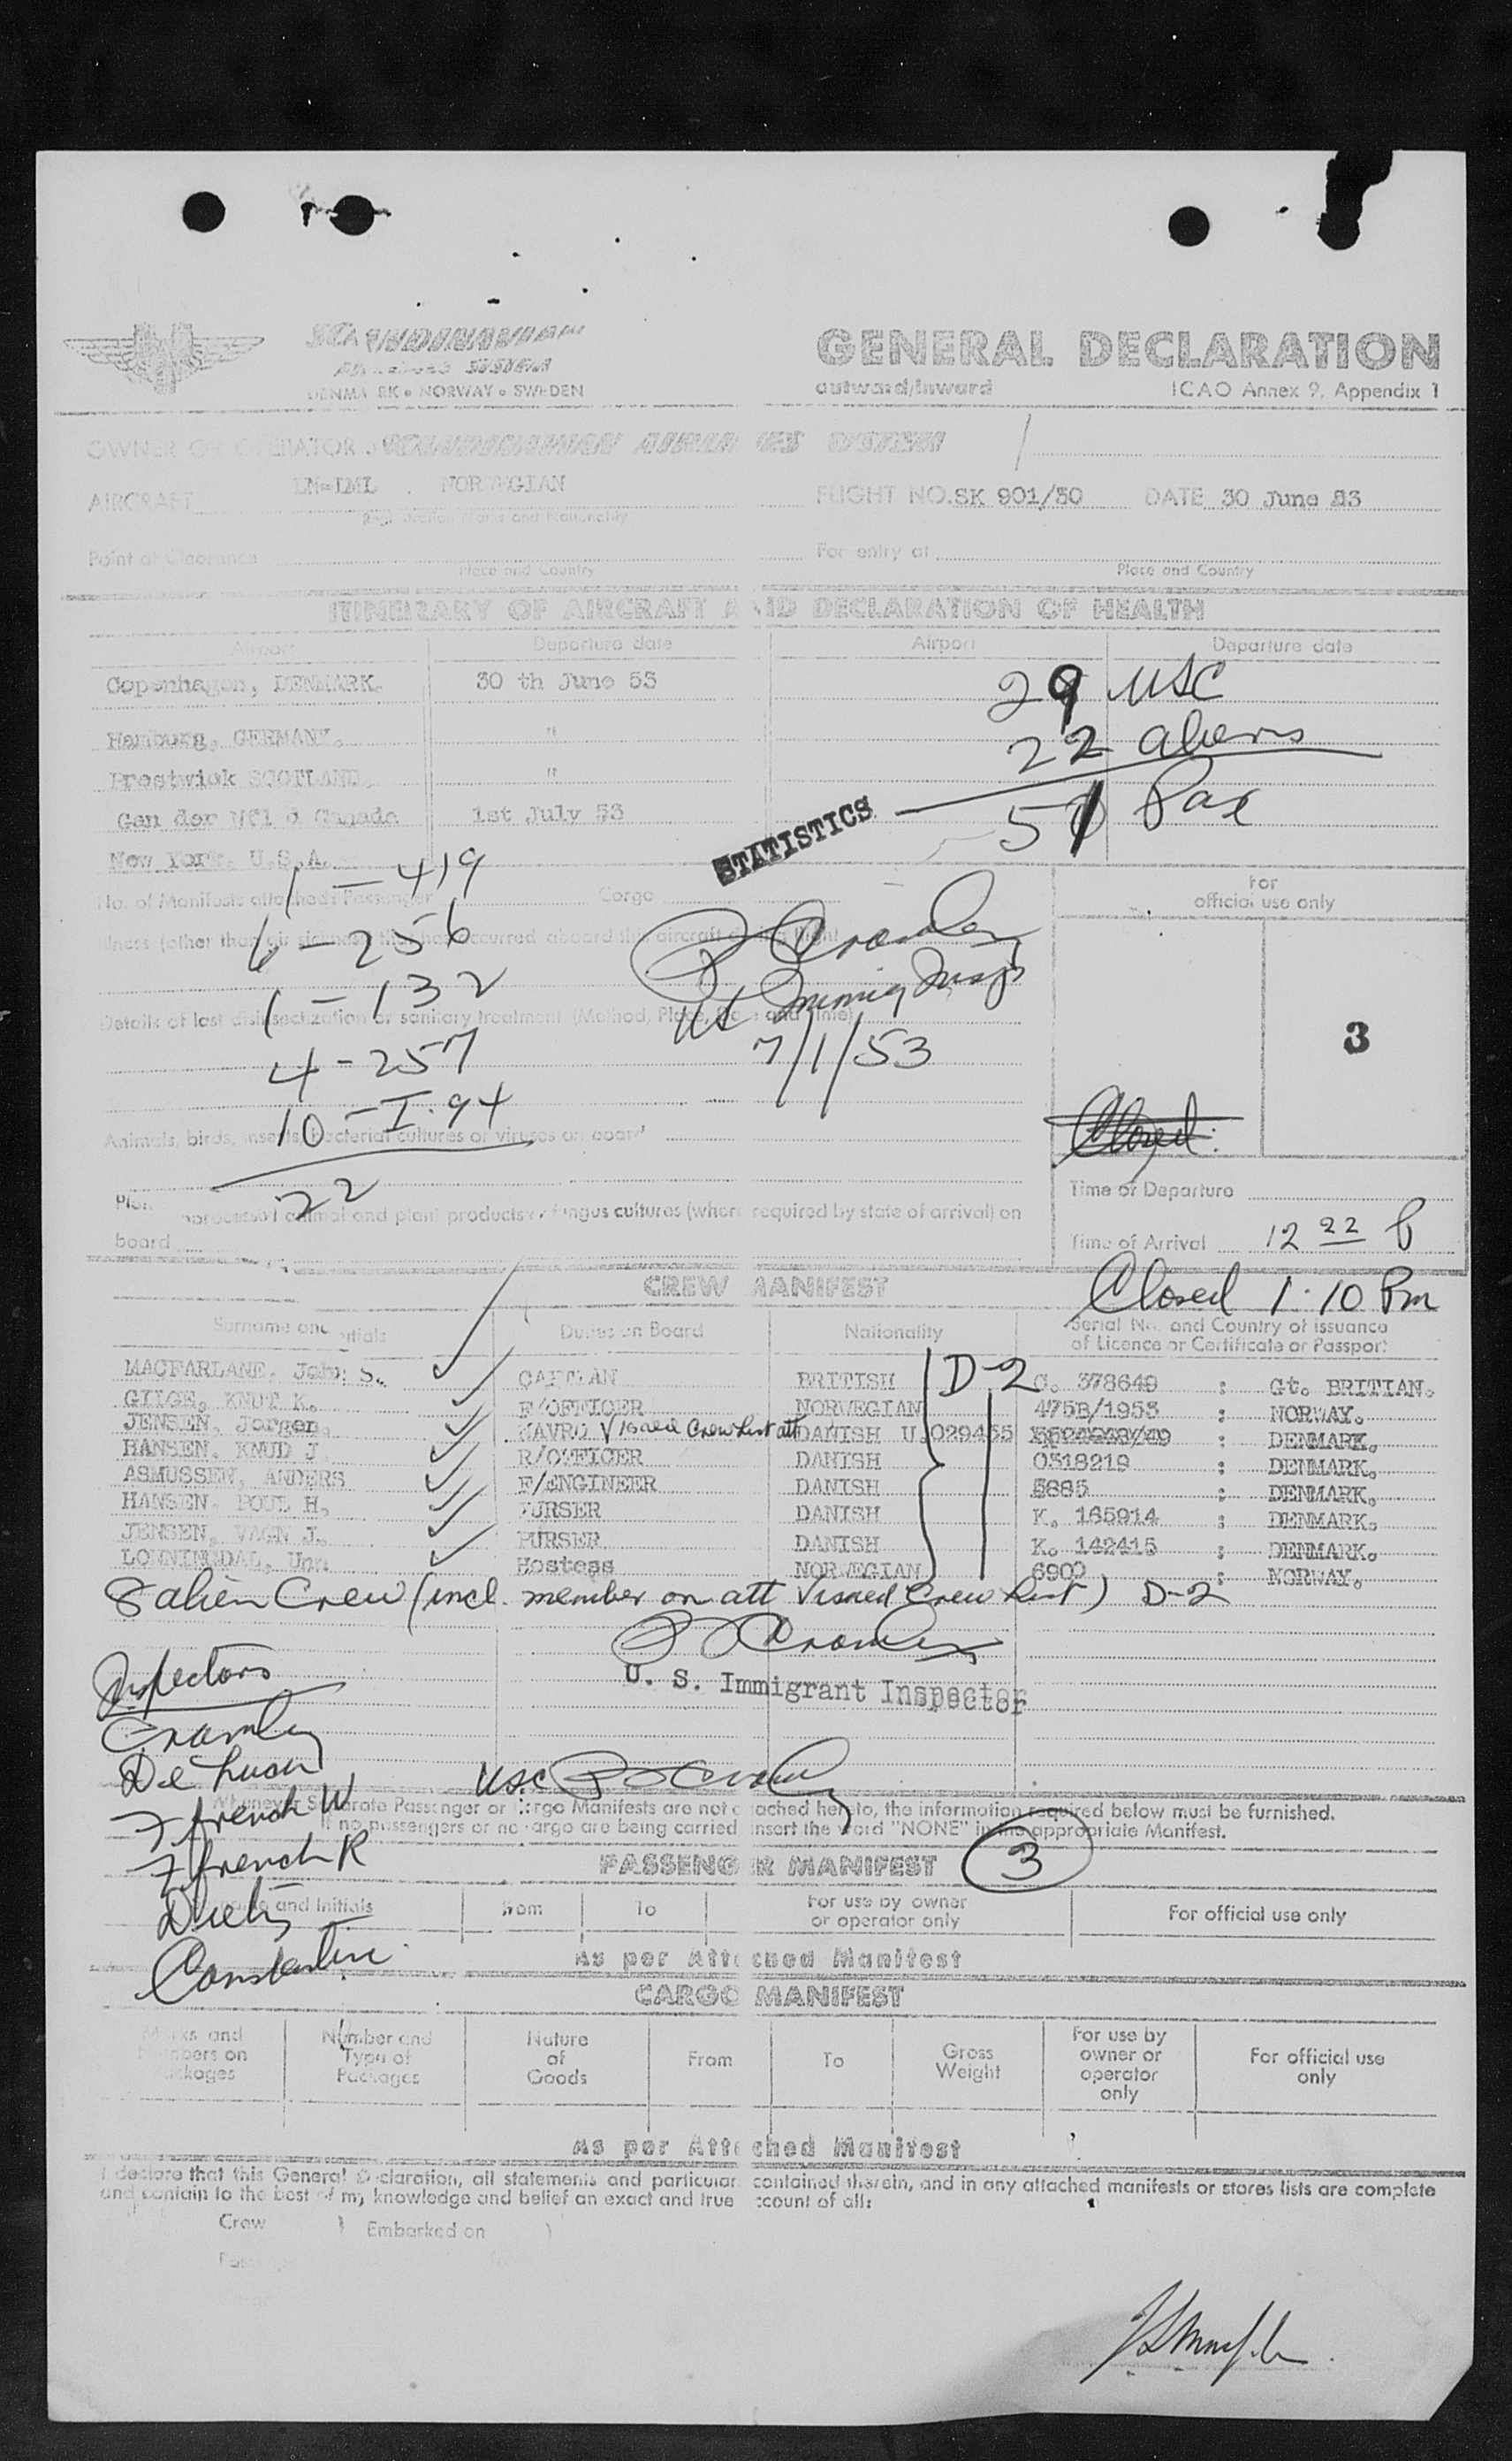 SCANDINAVIAN
AIRLINES SYSTEM
DENMARK • NORWAY • SWEDEN
GENERAL DECLARATION
outward/inward ICAO Annex 9, Appendix 1
OWNER OR OPERATOR SCANDINAVIAN AIRLINES SYSTEM
AIRCRAFT LN-LML . NORWEGIAN FLIGHT NO. SK 901/30 DATE 30 June 53
Registration Marks and Nationality
Point of Clearance For entry at
Place and Country Place and Country
ITINERARY OF AIRCRAFT AND DECLARATION OF HEALTH
Airport Departure date Airport Departure date
Copenhagen, DENMARK. 30 th June 53 29 USC
Hamburg, GERMANY. " 22 aliens
Prestwick SCOTLAND. "
Gander Nfld Canada 1st July 53 51 Pax
STATISTICS
New York, U.S.A.
1 - 419
No. of Manifests attached: Passenger Cargo
For official use only
Illness (other than air sickness) that has occurred aboard this aircraft during flight
6 - 256
1 - 132
US Immig Insp
Details of last disinsectization or sanitary treatment (Method, Place, Date and Time)
4 - 257 7/1/53
3
10 - I-94
Closed:
Animals, birds, insects, bacterial cultures or viruses on board
22
Time of Departure
processed animal and plant products or fungus cultures (where required by state of arrival) on
board
Time of Arrival 12 22 P
Closed 1:10 Pm
CREW MANIFEST
Surname and Initials Duties on Board Nationality Serial No. and Country of issuance
of Licence or Certificate or Passport
MACFARLANE, John S. CAPTAIN BRITISH D-2 C. 378649 : Gt. BRITIAN.
GILGE, KNUT K. F/OFFICER NORWEGIAN 475B/1953 : NORWAY.
JENSEN, Jorgen. NAVRO Visaed Crew List att DANISH U.029455 : DENMARK.
HANSEN, KNUD J R/OFFICER DANISH 0318219 : DENMARK.
ASMUSSEN, ANDERS F/ENGINEER DANISH 5885 : DENMARK.
HANSEN, POUL H. PURSER DANISH K. 165914 : DENMARK.
JENSEN, VAGN J. PURSER DANISH K. 142415 : DENMARK.
LONNINGDAL, Unn Hostess NORWEGIAN 6900 : NORWAY.
8 alien Crew (incl. member on att Visaed Crew List) D-2
U. S. Immigrant Inspector
Inspectors
USC
French W
Whenever Separate Passenger or Cargo Manifests are not attached hereto, the information required below must be furnished.
If no passengers or no cargo are being carried insert the word "NONE" in the appropriate Manifest.
French R
PASSENGER MANIFEST 3
and Initials From To For use by owner
or operator only For official use only
Constantine
As per Attached Manifest
CARGO MANIFEST
Marks and Numbers on Packages Number and Type of Packages Nature of Goods From To Gross Weight For use by owner or operator only For official use only
As per Attached Manifest
I declare that this General Declaration, all statements and particulars contained therein, and in any attached manifests or stores lists are complete
and contain to the best of my knowledge and belief an exact and true account of all:
Crew ) Embarked on )